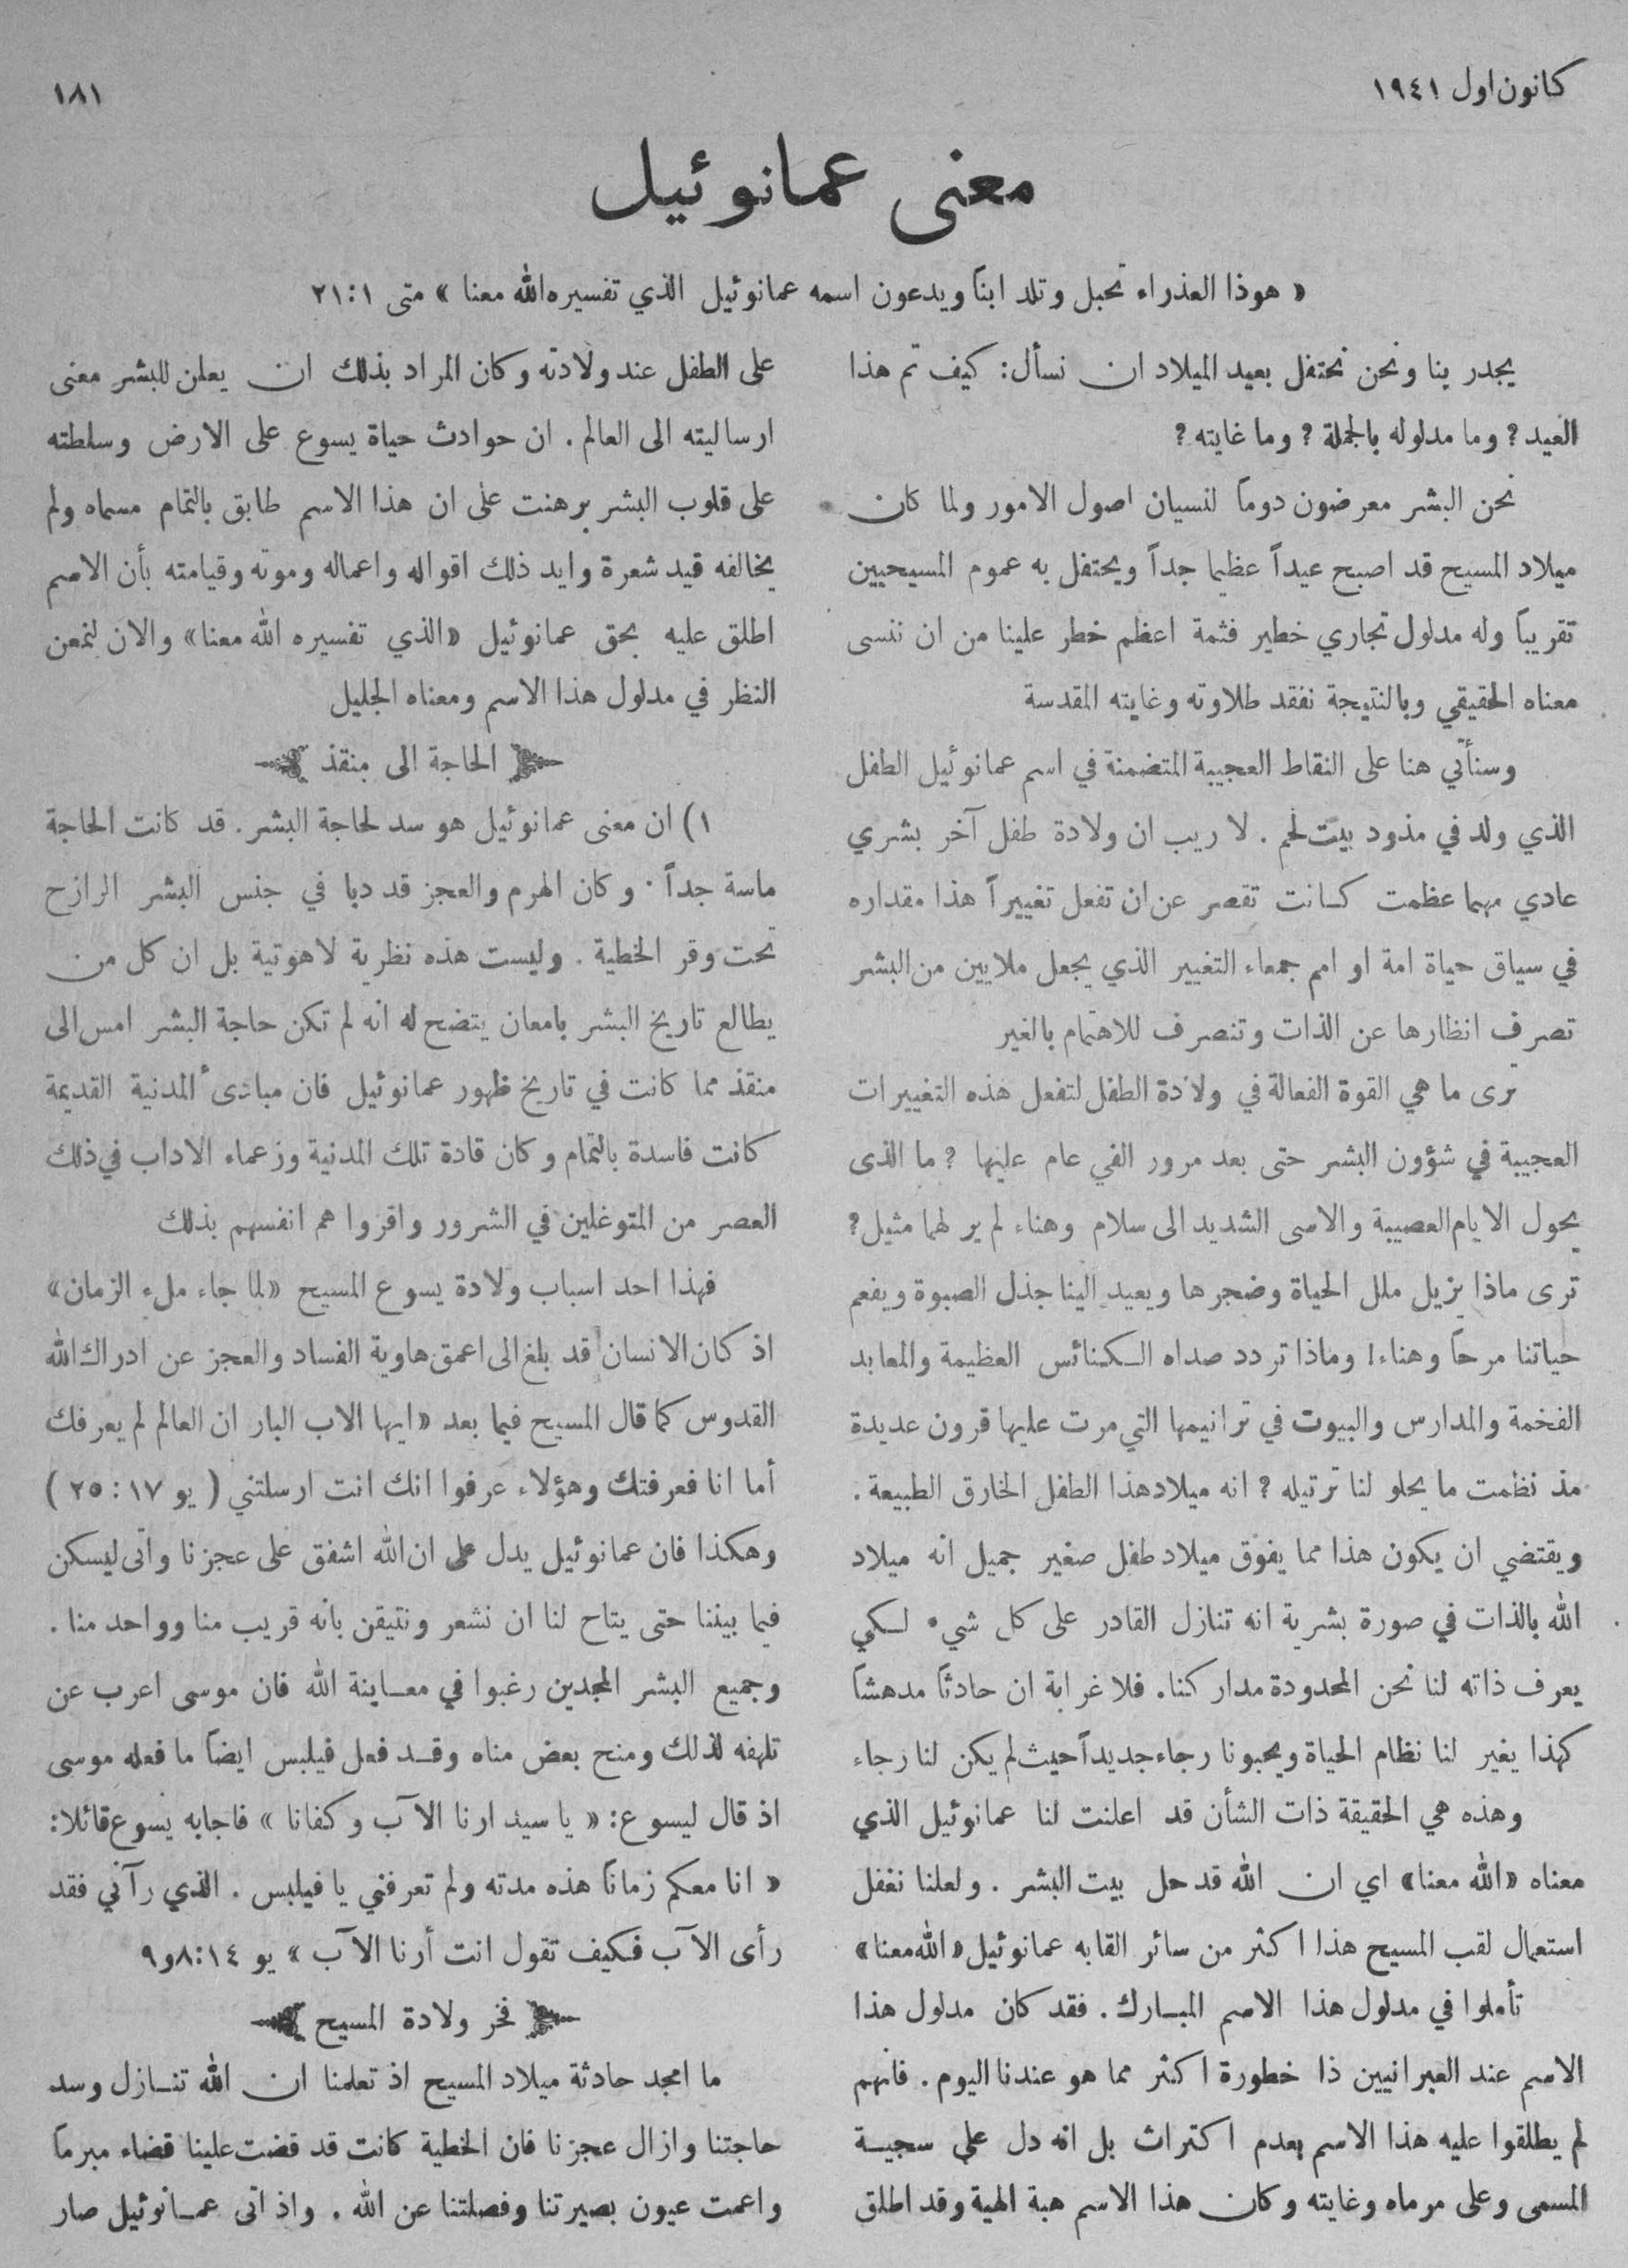 كانون اول ١٩٤١
١٨١
معنى عمانوئيل
« هوذا العذراء تحبل وتلد ابناً ويدعون اسمه عمانوئيل الذي تفسيره الله معنا » متى ١:٢١
يجدر بنا ونحن نحتفل بعيد الميلاد ان نسأل: كيف تم هذا
العيد؟ وما مدلوله بالجملة؟ وما غايته؟
نحن البشر معرضون دوماً لنسيان اصول الامور ولما كان
ميلاد المسيح قد اصبح عيداً عظيما جداً ويحتفل به عموم المسيحيين
تقريباً وله مدلول تجاري خطير فثمة اعظم خطر علينا من ان ننسى
معناه الحقيقي وبالنتيجة نفقد طلاوته وغايته المقدسة
وسنأتي هنا على النقاط العجيبة المتضمنة في اسم عمانوئيل الطفل
الذي ولد في مذود بيت لحم . لا ريب ان ولادة طفل آخر بشري
عادي مهما عظمت كانت تقصر عن ان تفعل تغييراً هذا مقداره
في سياق حياة امة او امم جمعاء التغيير الذي يجعل ملايين من البشر
تصرف انظارها عن الذات وتنصرف للاهتمام بالغير
ترى ما هي القوة الفعالة في ولادة الطفل لتفعل هذه التغييرات
العجيبة في شؤون البشر حتى بعد مرور الفي عام عليها ؟ ما الذى
يحول الايام العصيبة والاسى الشديد الى سلام وهناء لم ير لهما مثيل؟
ترى ماذا يزيل ملل الحياة وضجرها ويعيد الينا جذل الصبوة ويفعم
حياتنا مرحاً وهناء! وماذا تردد صداه الكنائس العظيمة والمعابد
الفخمة والمدارس والبيوت في ترانيمها التي مرت عليها قرون عديدة
مذ نظمت ما يحلو لنا ترتيله ؟ انه ميلاد هذا الطفل الخارق الطبيعة .
ويقتضي ان يكون هذا مما يفوق ميلاد طفل صغير جميل انه ميلاد
الله بالذات في صورة بشرية انه تنازل القادر على كل شيء لكي
يعرف ذاته لنا نحن المحدودة مداركنا. فلا غرابة ان حادثاً مدهشاً
كهذا يغير لنا نظام الحياة ويحبونا رجاء جديداً حيث لم يكن لنا رجاء
وهذه هي الحقيقة ذات الشأن قد اعلنت لنا عمانوئيل الذي
معناه «الله معنا» اي ان الله قد حل بيت البشر . ولعلنا نغفل
استعمال لقب المسيح هذا اكثر من سائر القابه عمانوئيل «الله معنا»
تأملوا في مدلول هذا الاسم المبارك . فقد كان مدلول هذا
الاسم عند العبرانيين ذا خطورة اكثر مما هو عندنا اليوم . فانهم
لم يطلقوا عليه هذا الاسم بعدم اكتراث بل انه دل على سجية
المسمى وعلى مرماه وغايته وكان هذا الاسم هبة الهية وقد اطلق
على الطفل عند ولادته وكان المراد بذلك ان يعلن للبشر معنى
ارساليته الى العالم . ان حوادث حياة يسوع على الارض وسلطته
على قلوب البشر برهنت على ان هذا الاسم طابق بالتمام مسماه ولم
يخالفه قيد شعرة وايد ذلك اقواله واعماله وموته وقيامته بأن الاسم
اطلق عليه بحق عمانوئيل «الذي تفسيره الله معنا» والان لنمعن
النظر في مدلول هذا الاسم ومعناه الجليل
الحاجة الى منقذ
١) ان معنى عمانوئيل هو سد لحاجة البشر . قد كانت الحاجة
ماسة جداً . وكان الهرم والعجز قد دبا في جنس البشر الرازح
تحت وقر الخطية . وليست هذه نظرية لاهوتية بل ان كل من
يطالع تاريخ البشر بامعان يتضح له انه لم تكن حاجة البشر امس الى
منقذ مما كانت في تاريخ ظهور عمانوئيل فان مبادئ المدنية القديمة
كانت فاسدة بالتمام وكان قادة تلك المدنية وزعماء الاداب في ذلك
العصر من المتوغلين في الشرور واقروا هم انفسهم بذلك
فهذا احد اسباب ولادة يسوع المسيح «لما جاء ملء الزمان»
اذ كان الانسان قد بلغ الى اعمق هاوية الفساد والعجز عن ادراك الله
القدوس كما قال المسيح فيما بعد « ايها الاب البار ان العالم لم يعرفك
أما انا فعرفتك وهؤلاء عرفوا انك انت ارسلتني ( يو ١٧ : ٢٥ )
وهكذا فان عمانوئيل يدل على ان الله اشفق على عجزنا واتى ليسكن
فيما بيننا حتى يتاح لنا ان نشعر ونتيقن بانه قريب منا وواحد منا .
وجميع البشر المجدين رغبوا في معاينة الله فان موسى اعرب عن
تلهفه لذلك ومنح بعض مناه وقد فعل فيلبس ايضاً ما فعله موسى
اذ قال ليسوع: « يا سيد ارنا الآب وكفانا » فاجابه يسوع قائلا:
« انا معكم زماناً هذه مدته ولم تعرفني يا فيلبس . الذي رآني فقد
رأى الآب فكيف تقول انت أرنا الآب » يو ١٤:٨و٩
فخر ولادة المسيح
ما امجد حادثة ميلاد المسيح اذ تعلمنا ان الله تنازل وسد
حاجتنا وازال عجزنا فان الخطية كانت قد قضت علينا قضاء مبرماً
واعمت عيون بصيرتنا وفصلتنا عن الله . واذ اتى عمانوئيل صار